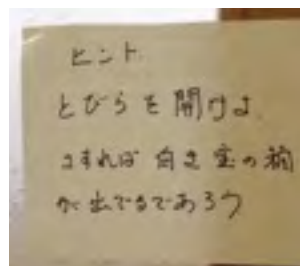 ヒント
とびらを開けよ
さすれば 白き宝の箱
が出てるであろう